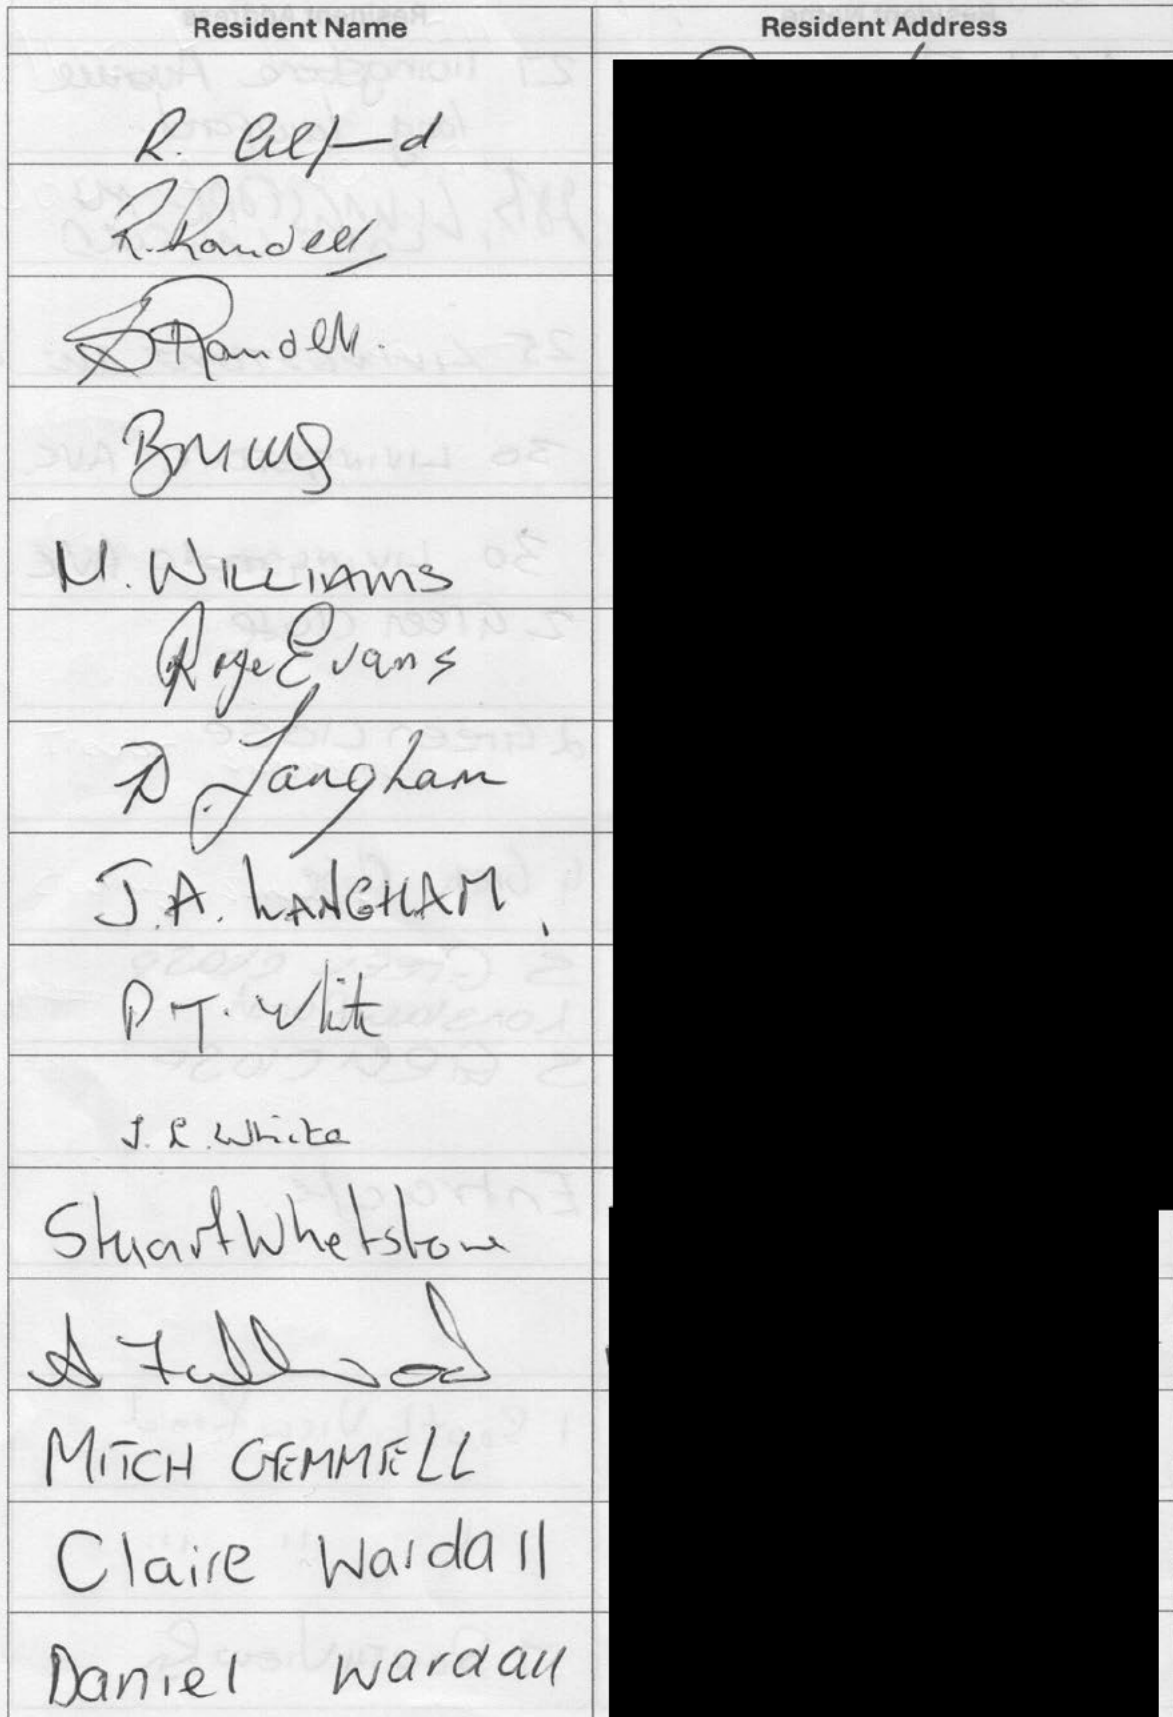 Resident Name Resident Address
R.
R. Randell
Randell.
M. WILLIAMS
Roger Evans
D. Langham
J.A. LANGHAM.
P T. White
J. R. White
Stuart Whetstone
A Fullwood
MITCH GEMMELL
Claire Wardall
Daniel Wardall